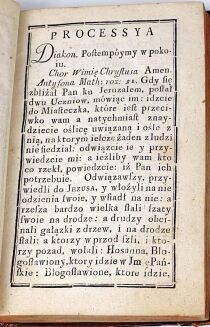 PROCESSYA
Diakon. Postempóymy w poko-
iu.
Chor Wimię Chrystusa Amen.
Antyfona Math: roz: 21. Gdy się
zbliżał Pan ku Jeruzalem, posłał
dwu Uczniow, mówiąc im: idzcie
do Miasteczka, ktore iest przeci-
wko wam a natychmiast znay-
dziecie oślicę uwiązaną i oślę z
nią, na ktorym ieszcze żaden z ludzi
nie siedział: odwiązcie ie y przy-
wiedzcie mi: a ieżliby wam kto
co rzekł, powiedzcie iż Pan ich
potrzebuie. Odwiązawszy, przy-
wiedli do Jezusa, y włożyli na nie
odzienia swoie, y wsiadł na nie: a
rzesza bardzo wielka słali szaty
swoie na drodze: a drudzy obci-
nali gałązki z drzew, i na drodze
słali: a ktorzy w przód szli, i kto-
rzy pozad, wołali: Hosanna, Bło-
gosławiony, ktory idzie w Jm ę Pań-
skie: Błogosławione, ktore idzie,